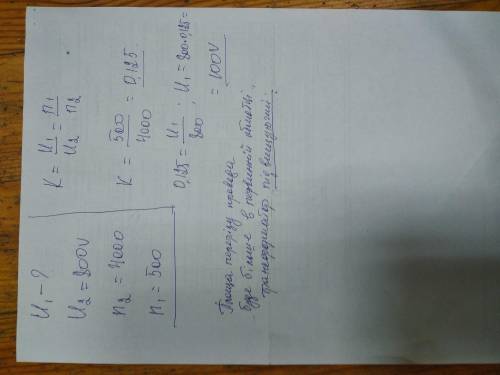 U₁ - ?
U₂ = 800V
n₂ = 4000
n₁ = 500
K = U₁/U₂ = n₁/n₂
K = 500/4000 = 0,125
0,125 = U₁/800 ; U₁ = 800·0,125 =
= 100V
Площа перерізу провода
буде більше в первинній обмотці,
трансформатор підвищуючий.